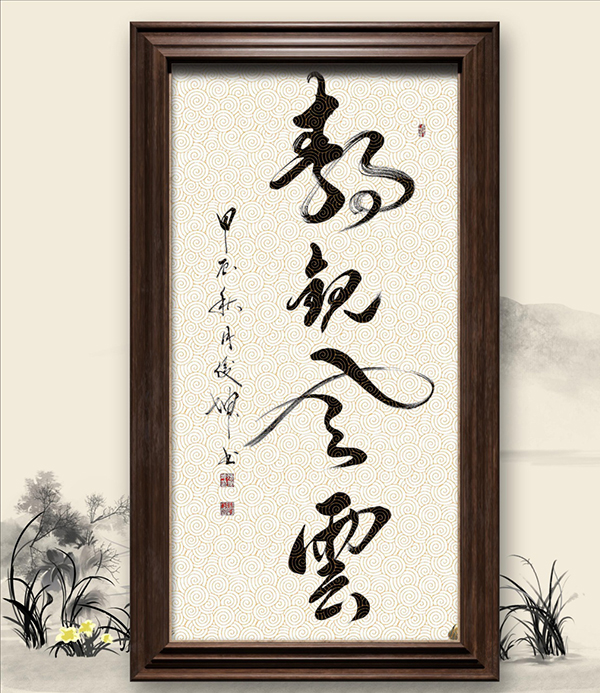 静观风雲
甲辰秋月俊坤书